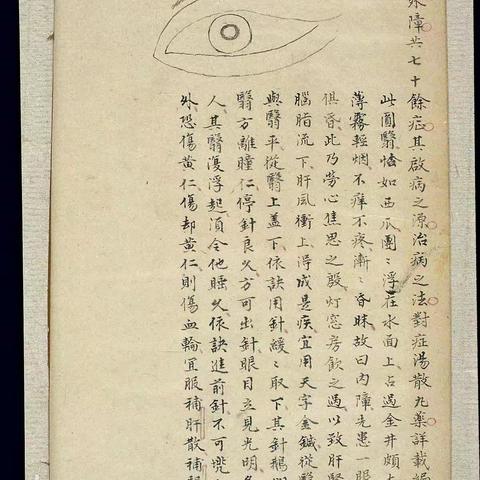 障共七十餘症其啟病之源治病之法對症湯散丸藥詳載
此圓翳幡如西瓜團〻浮在水面上占過金井頗
薄霧輕烟不痒不疼漸〻昏昧故曰內障先患一眼
俱昏此乃勞心焦思之殷灯窓房飲之過以致肝腎
腦脂流下肝風衝上得成是疾宜用天字金鍼從
與翳平從翳上盖下依訣用針緩〻取下其針鵝
翳方離瞳仁停針良久方可出針眼目立見光明
人其翳復浮起須令他睡久依訣進前針不可
外恐傷黃仁傷却黃仁則傷血輪宜服補肝散補